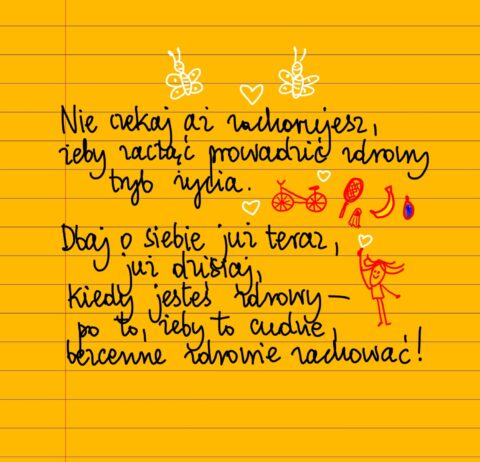 Nie czekaj aż zachorujesz,
żeby zacząć prowadzić zdrowy
tryb życia.
Dbaj o siebie już teraz,
już dzisiaj,
kiedy jesteś zdrowy –
po to, żeby to cudne,
bezcenne zdrowie zachować!